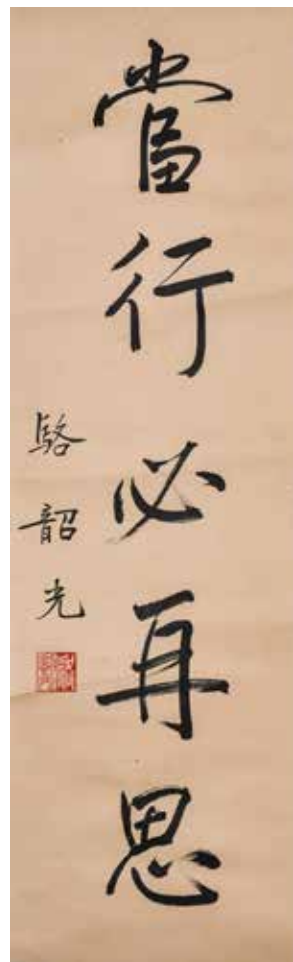 當行必再思
駱韶光